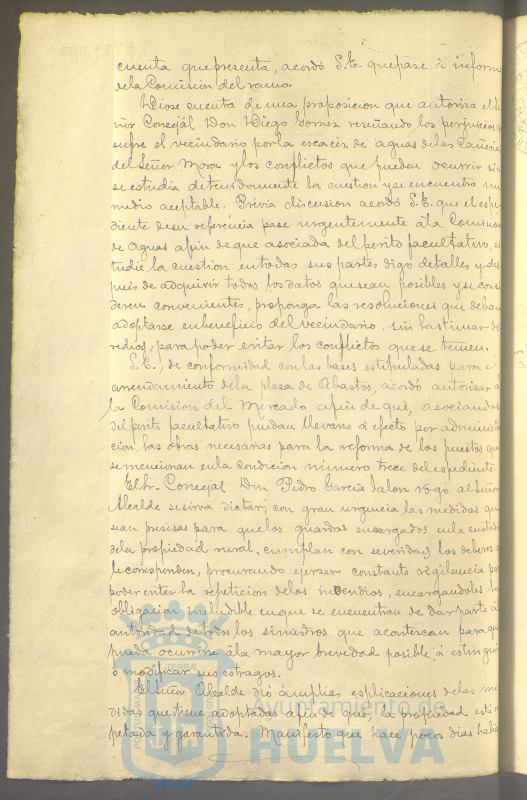 cuenta que presenta, acordó S.E. que pase á informe
de la Comision del ramo.
Diose cuenta de una proposicion que autoriza el Se-
ñor Concejál Don Diego Gomez reseñando los perjuicios q
sufre el vecindario por la escacéz de aguas de las Cañerias
del Señor Mora y los conflictos que pueden ocurrir si no
se estudia detenidamente la cuestion y se encuentra un
medio aceptable. Prévia discusion acordó S.E. que el espe-
diente de su referencia pase urgentemente á la Comision
de Aguas afin de que asociada del perito facultativo, es
tudie la cuestion en todas sus partes digo detalles y des
pues de adquirir todos los datos que sean posibles y se consi
deren convenientes, proponga las resoluciones que deban
adoptarse en beneficio del vecindario, sin lastimar de
rechos, para poder evitar los conflictos que se temen.
S.E., de conformidad con las bases estipuladas para el
arrendamiento de la plaza de Abastos, acordó autorizar a
la Comision del Mercado, afin de que, asociandose
del perito facultativo puedan llevarse á efecto por administra
cion, las obras necesarias para la reforma de los puestos que
se mencionan en la condicion número trece del espediente.
El Sr. Concejal Don Pedro García Jalon rogó al Señor
Alcalde se sirva dictar, con gran urgencia las medidas que
sean precisas para que los guardas encargados en la custodia
de la propiedad rural, cumplan con severidad los deberes q
le corresponden, procurando ejercer constante vigilancia para
poder evitar la repeticion de los incendios, encargandoles la
obligacion ineludible en que se encuentran de dar parte á la
autoridad de todos los siniestros que acontezcan para que
pueda ocurrirse á la mayor brevedad posible á estinguir
ó modificar sus estragos.
El Señor Alcalde dió ámplias esplicaciones de las me
didas que tiene adoptadas afin de que, la propiedad esté res
petada y garantida. Manifestó que hace pocos dias habia
Ayuntamiento de
HUELVA